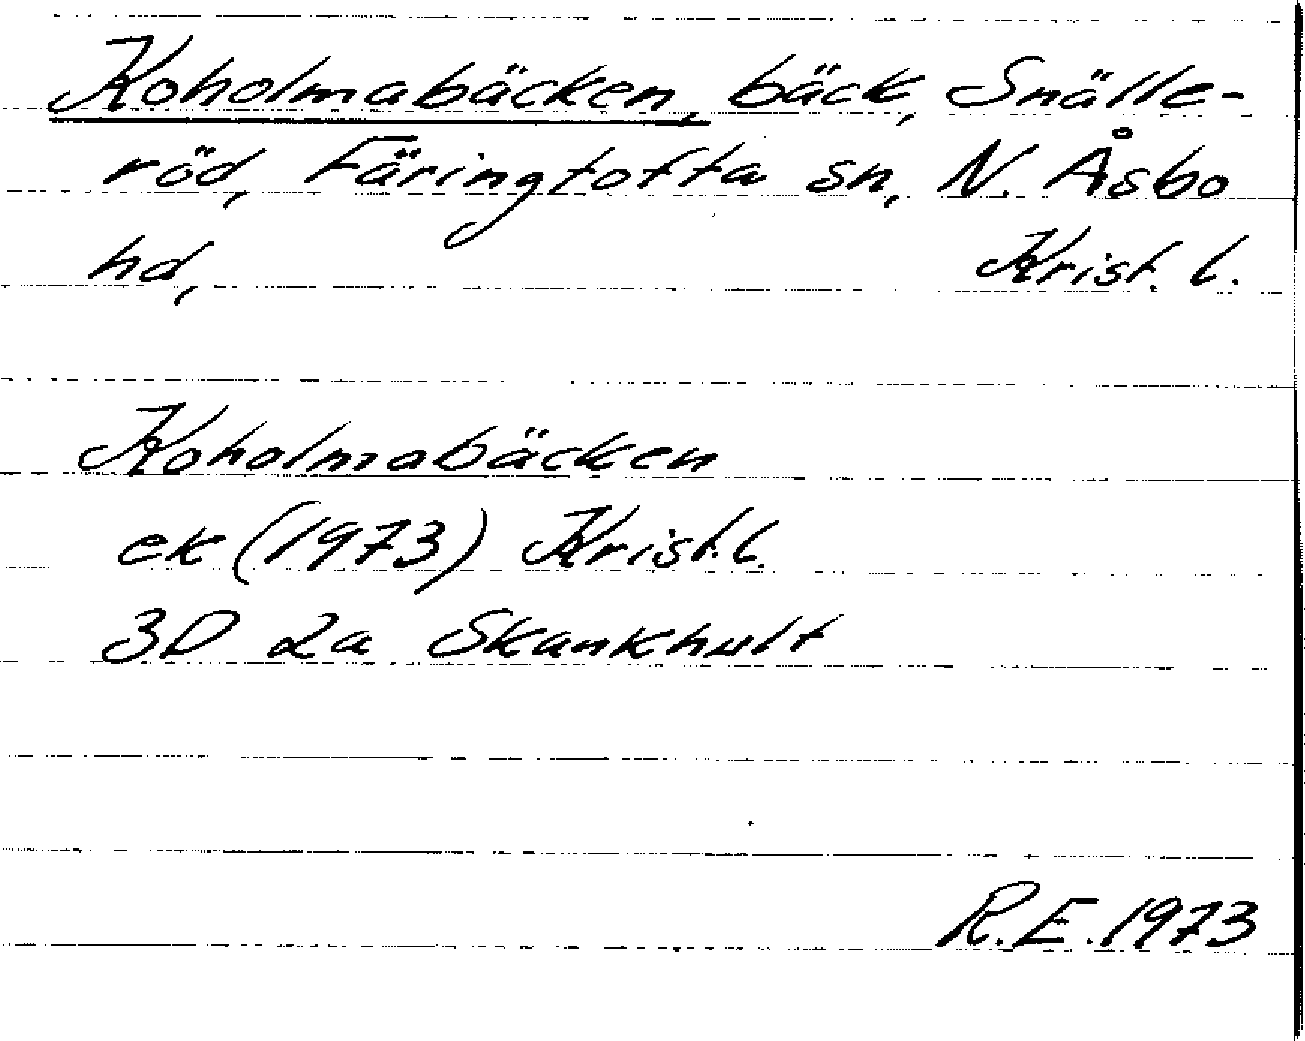 Koholmabäcken, bäck, Snälle-
röd, Färingtofta sn, N. Åsbo
hd, Krist. l.
Koholmabäcken
ek (1973) Krist. l.
3D 2a Skankhult
R.E. 1973